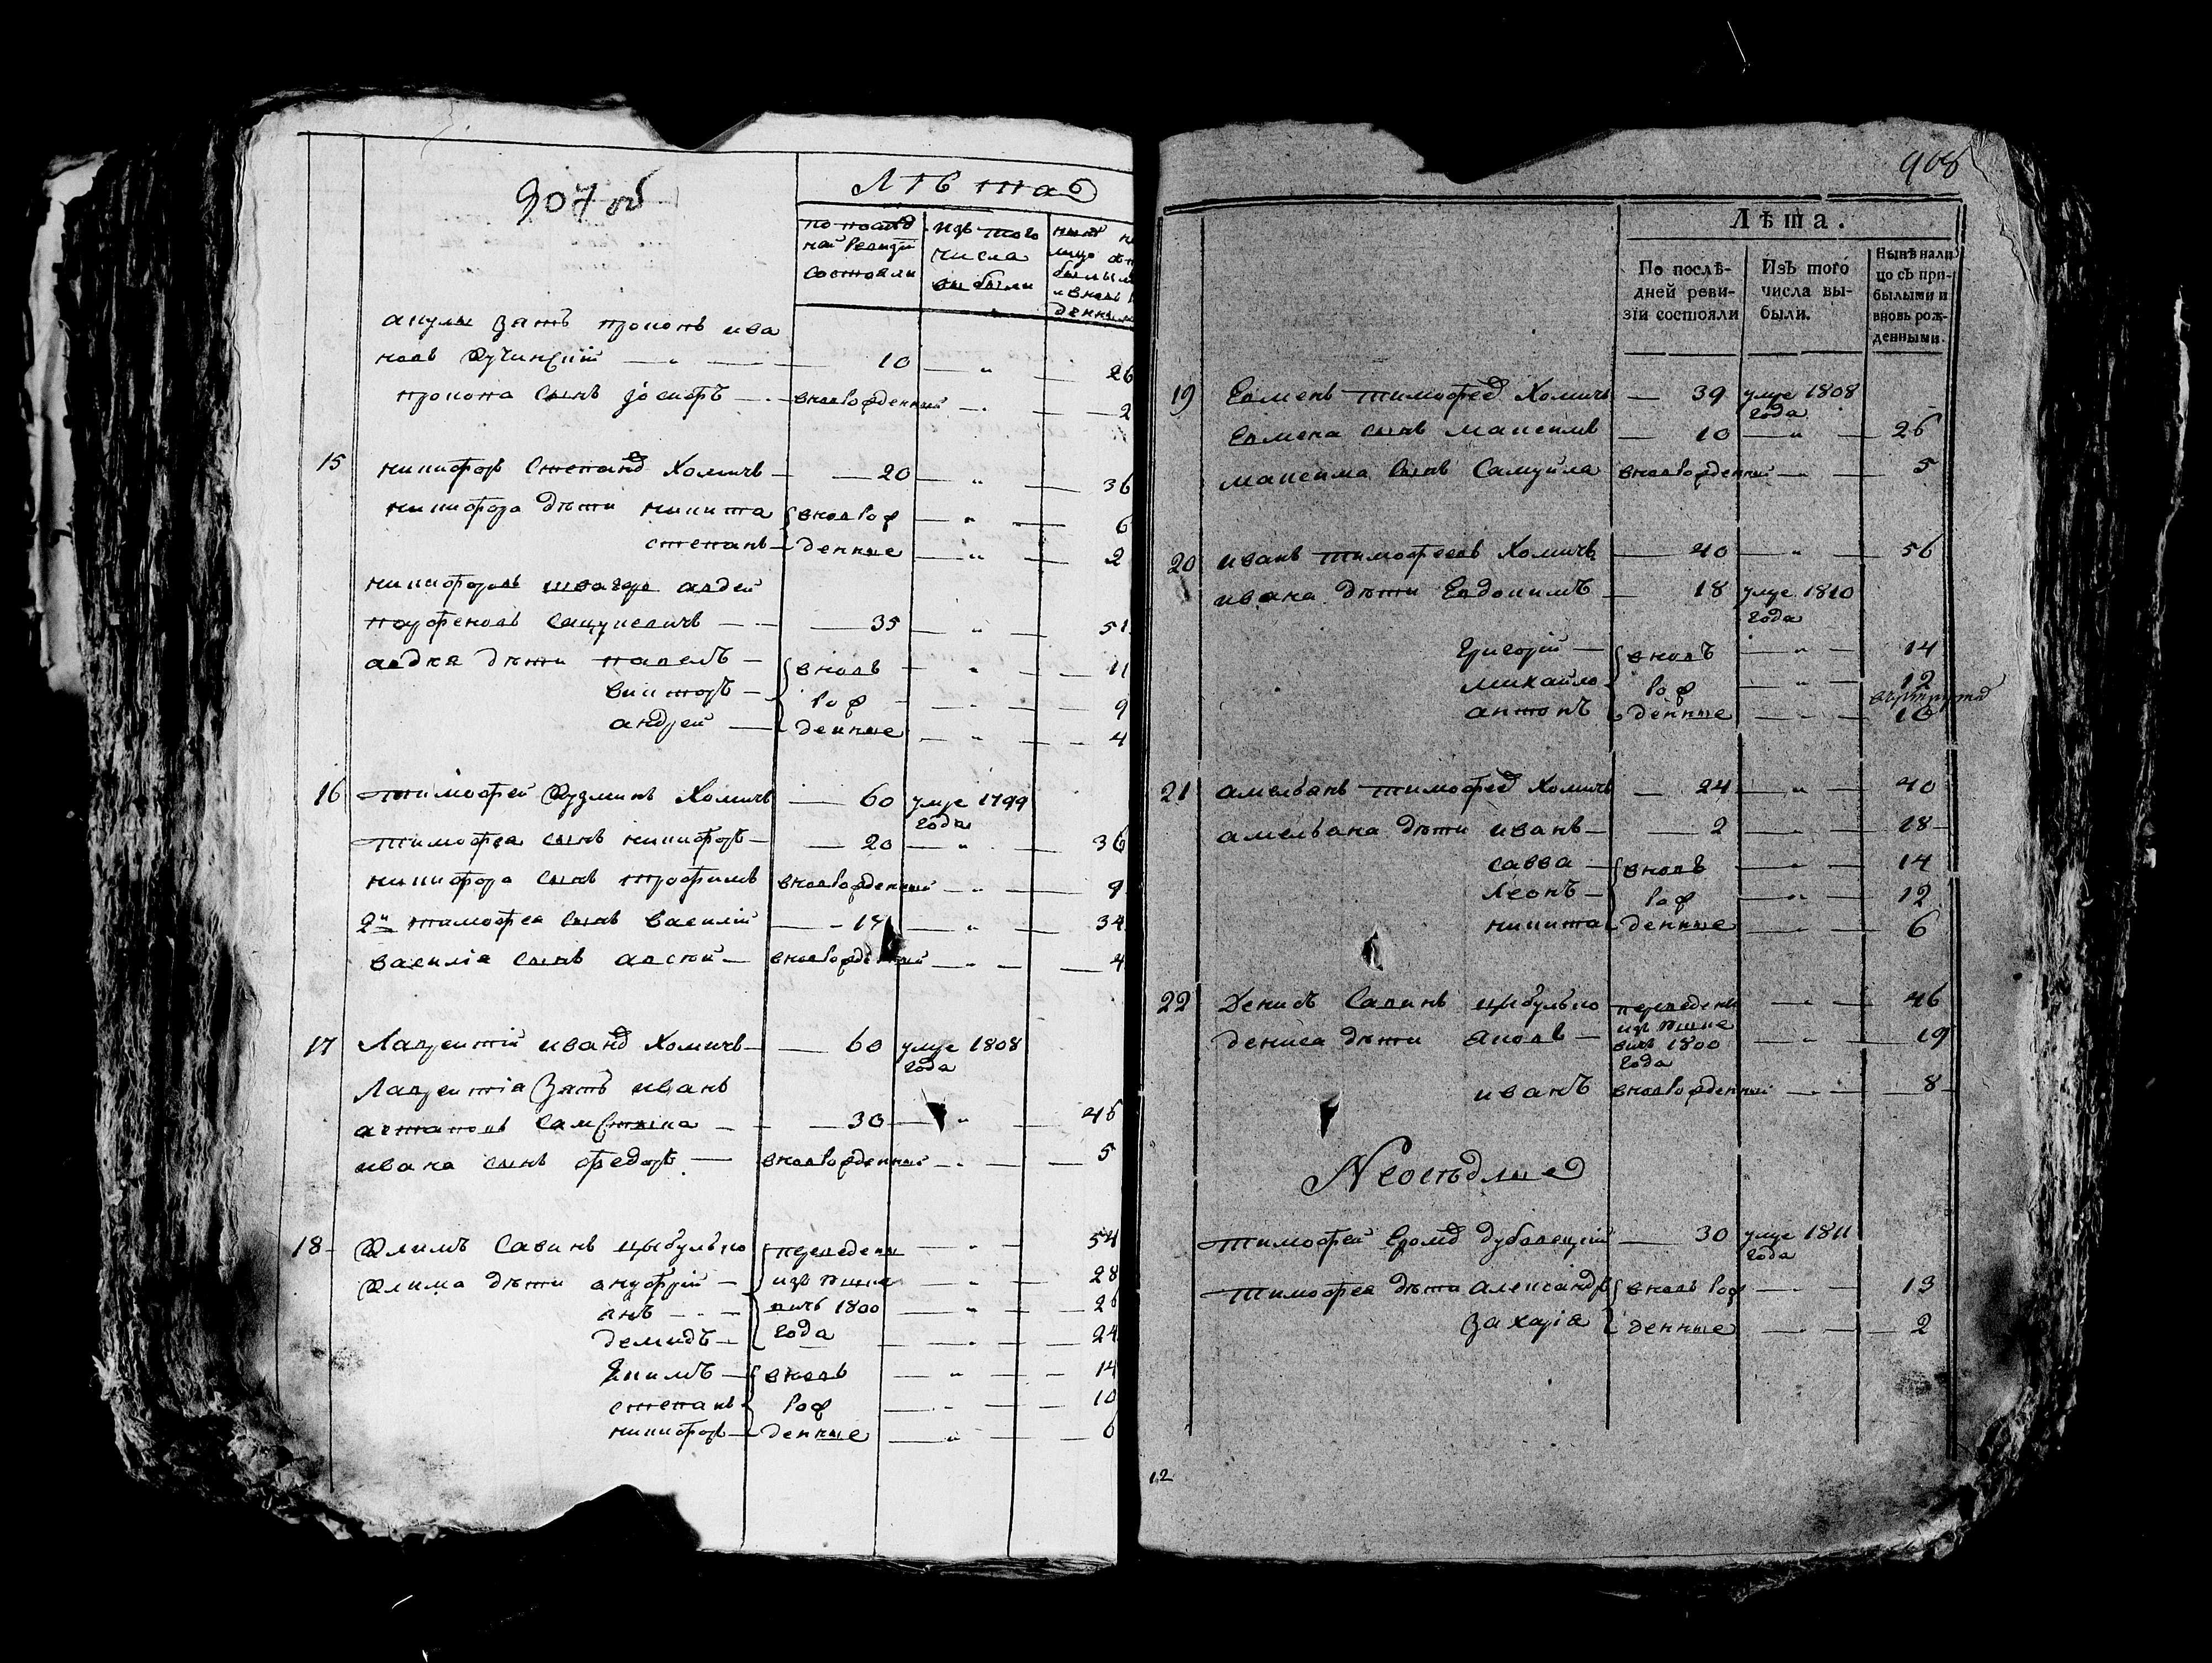 907 об
Лѣта
по послѣд
ней ревизіи
состояли
изъ того
числа
выбыли
нынѣ
акулы зять прокопъ ива
новъ кучинскій — 10 — „ — 26
прокопа сынъ іосифъ — вновьрожденный — „ — 2
15 никифоръ степановъ Хомичъ — 20 — „ — 36
никифора дѣти никита { вновь рож — „ — 6
степанъ — денные — „ — 2
никифоровъ швагеръ авдей
парфеновъ сацукевичъ — 35 — „ — 51
авдея дѣти павелъ — { вновь — „ — 11
викторъ — рож — „ — 9
андрей — денные — „ — 4
16 тимофей Кузминъ Хомичъ — 60 умре 1799
года
тимофея сынъ никифоръ — 20 — „ — 36
никифора сынъ трофимъ вновьрожденный — „ — 9
2й тимофея сынъ василій — 18 — „ — 34
василія сынъ авсѣй — вновьрожденный — „ — 4
17 Лаврентій ивановъ Хомичъ — 60 умре 1808
года
Лаврентія зять иванъ
астаповъ самстыка — 30 — „ — 46
ивана сынъ федоръ — вновьрожденный — „ — 5
18 Климъ савинъ цыбулько { переведены — „ — 54
Клима дѣти ануфрій — изъ — „ — 28
янъ — 1800 — „ — 26
демидъ — года — „ — 24
якимъ — { вновь — „ — 14
степанъ рож — „ — 10
никифоръ — денные — „ — 6
908
Лѣта.
По послѣ-
дней реви-
зіи состояли
Изъ того
числа вы-
были.
Нынѣ нали
цо съ при-
былыми и
вновь рож-
денными.
19 Евменъ тимофеевъ Хомичъ — 39 умре 1808
года
Евмена сынъ максимъ — 10 — „ — 26
максима сынъ Самуйла вновьрожденный — „ — 5
20 иванъ тимофеевъ Хомичъ — 40 — „ — 56
ивана дѣти Евдокимъ — 18 умре 1810
года
Григорій — { вновь — „ — 14
михайло рож — „ — 12
антонъ денные — „ — 10
21 амельянъ тимофеевъ Хомичъ — 24 — „ — 40
амельяна дѣти иванъ — 2 — „ — 18
савва — { вновь — „ — 14
Леонъ — рож — „ — 12
никита денные — „ — 6
22 Денисъ Савинъ цыбулько переведены — „ — 46
дениса дѣти яковъ — изъ — „ — 19
1800
года
иванъ вновьрожденный — „ — 8
Неосѣдлые
тимофей Еромовъ дубовецкій — 30 умре 1811
года
тимофея дѣти александръ { вновь рож — „ — 13
Захарія денные — „ — 2
12